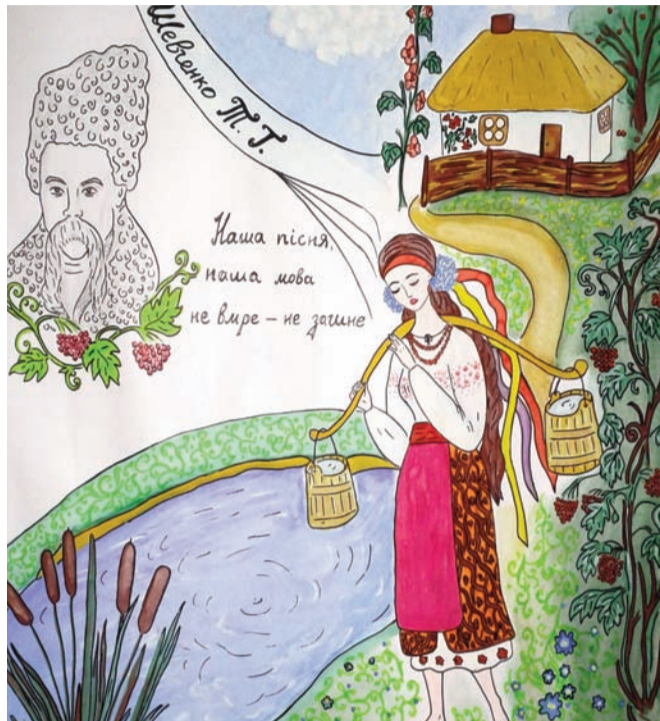 Шевченко Т. Г.
Наша пісня,
наша мова
не вмре – не загине